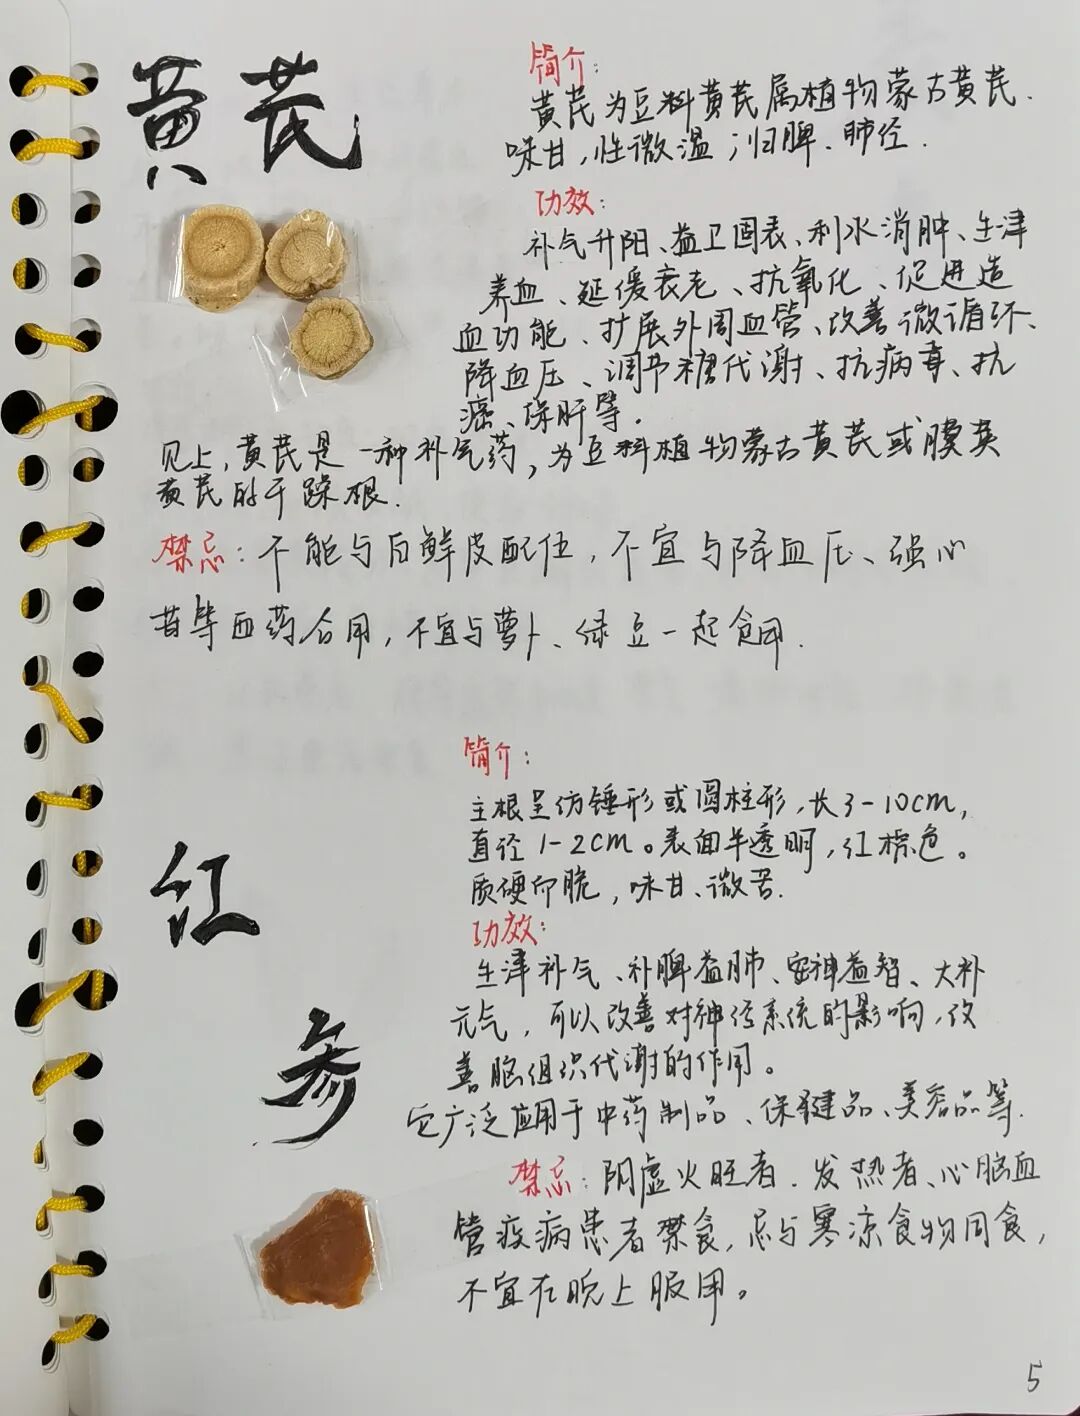 黄芪
简介：
黄芪为豆科黄芪属植物蒙古黄芪.
味甘,性微温;归脾、肺经.
功效：
补气升阳、益卫固表、利水消肿、生津
养血、延缓衰老、抗氧化、促进造
血功能、扩展外周血管、改善微循环、
降血压、调节糖代谢、抗病毒、抗
癌、保肝等.
见上,黄芪是一种补气药,为豆科植物蒙古黄芪或膜荚
黄芪的干躁根.
禁忌：不能与白鲜皮配伍,不宜与降血压、强心
苷等西药合用,不宜与萝卜、绿豆一起食用.
简介：
主根呈纺锤形或圆柱形,长3-10cm,
直径1-2cm。表面半透明,红棕色。
质硬而脆,味甘、微苦.
红
功效：
生津补气、补脾益肺、安神益智、大补
元气,可以改善对神经系统的影响,改
善脑组织代谢的作用。
参
它广泛应用于中药制品、保健品、美容品等.
禁忌：阴虚火旺者、发热者、心脑血
管疾病患者禁食,忌与寒凉食物同食,
不宜在晚上服用。
5